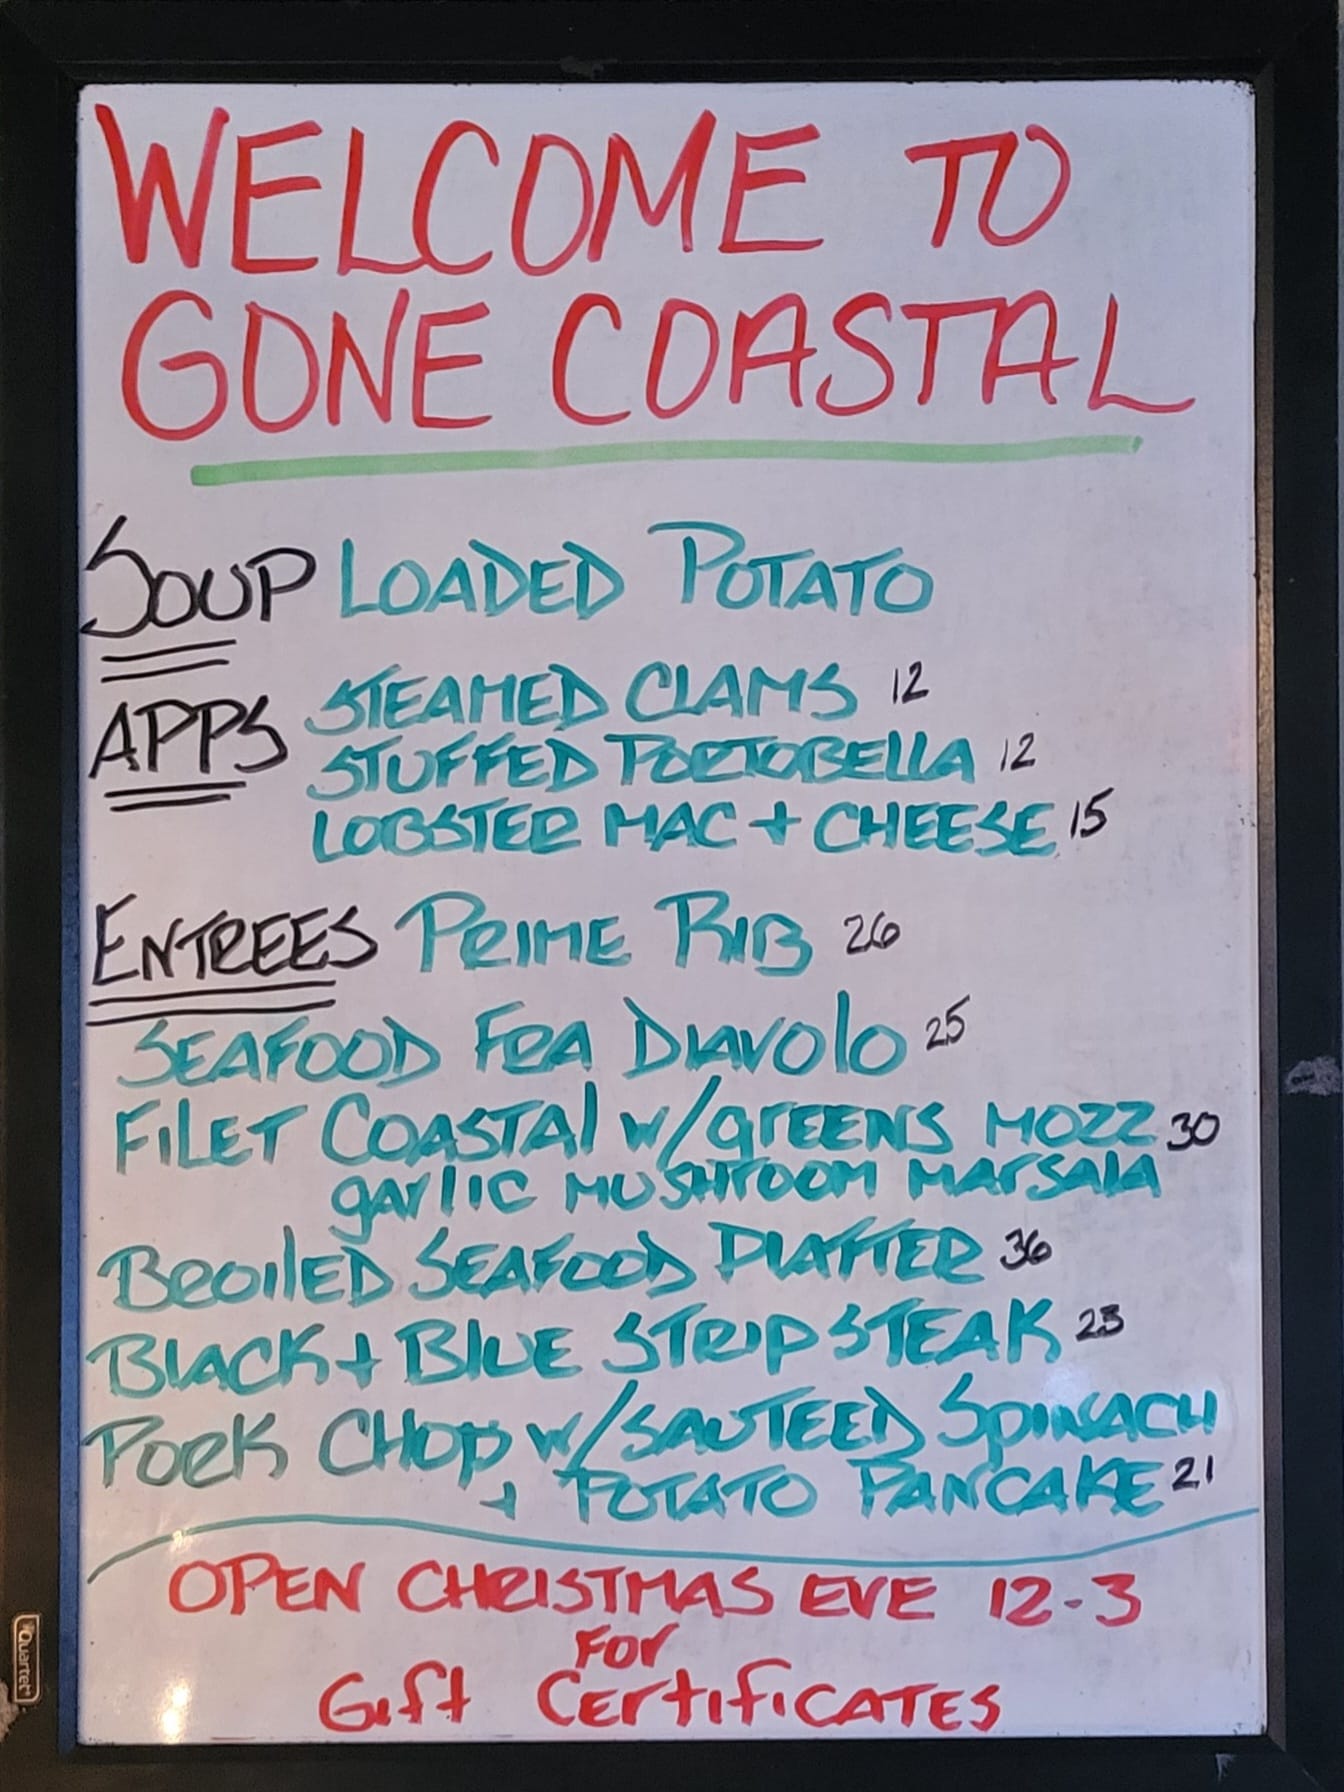 WELCOME TO
GONE COASTAL
SOUP LOADED POTATO
APPS STEAMED CLAMS 12
STUFFED PORTOBELLA 12
LOBSTER MAC + CHEESE 15
ENTREES PRIME RIB 26
SEAFOOD FRA DIAVOLO 25
FILET COASTAL w/greens MOZZ 30
garlic MUSHROOM MARSALA
BROILED SEAFOOD PLATTER 36
BLACK + BLUE STRIP STEAK 23
PORK CHOP w/SAUTEED SPINACH
+ POTATO PANCAKE 21
OPEN CHRISTMAS EVE 12-3
FOR
Gift CERTIFICATES
Quartet